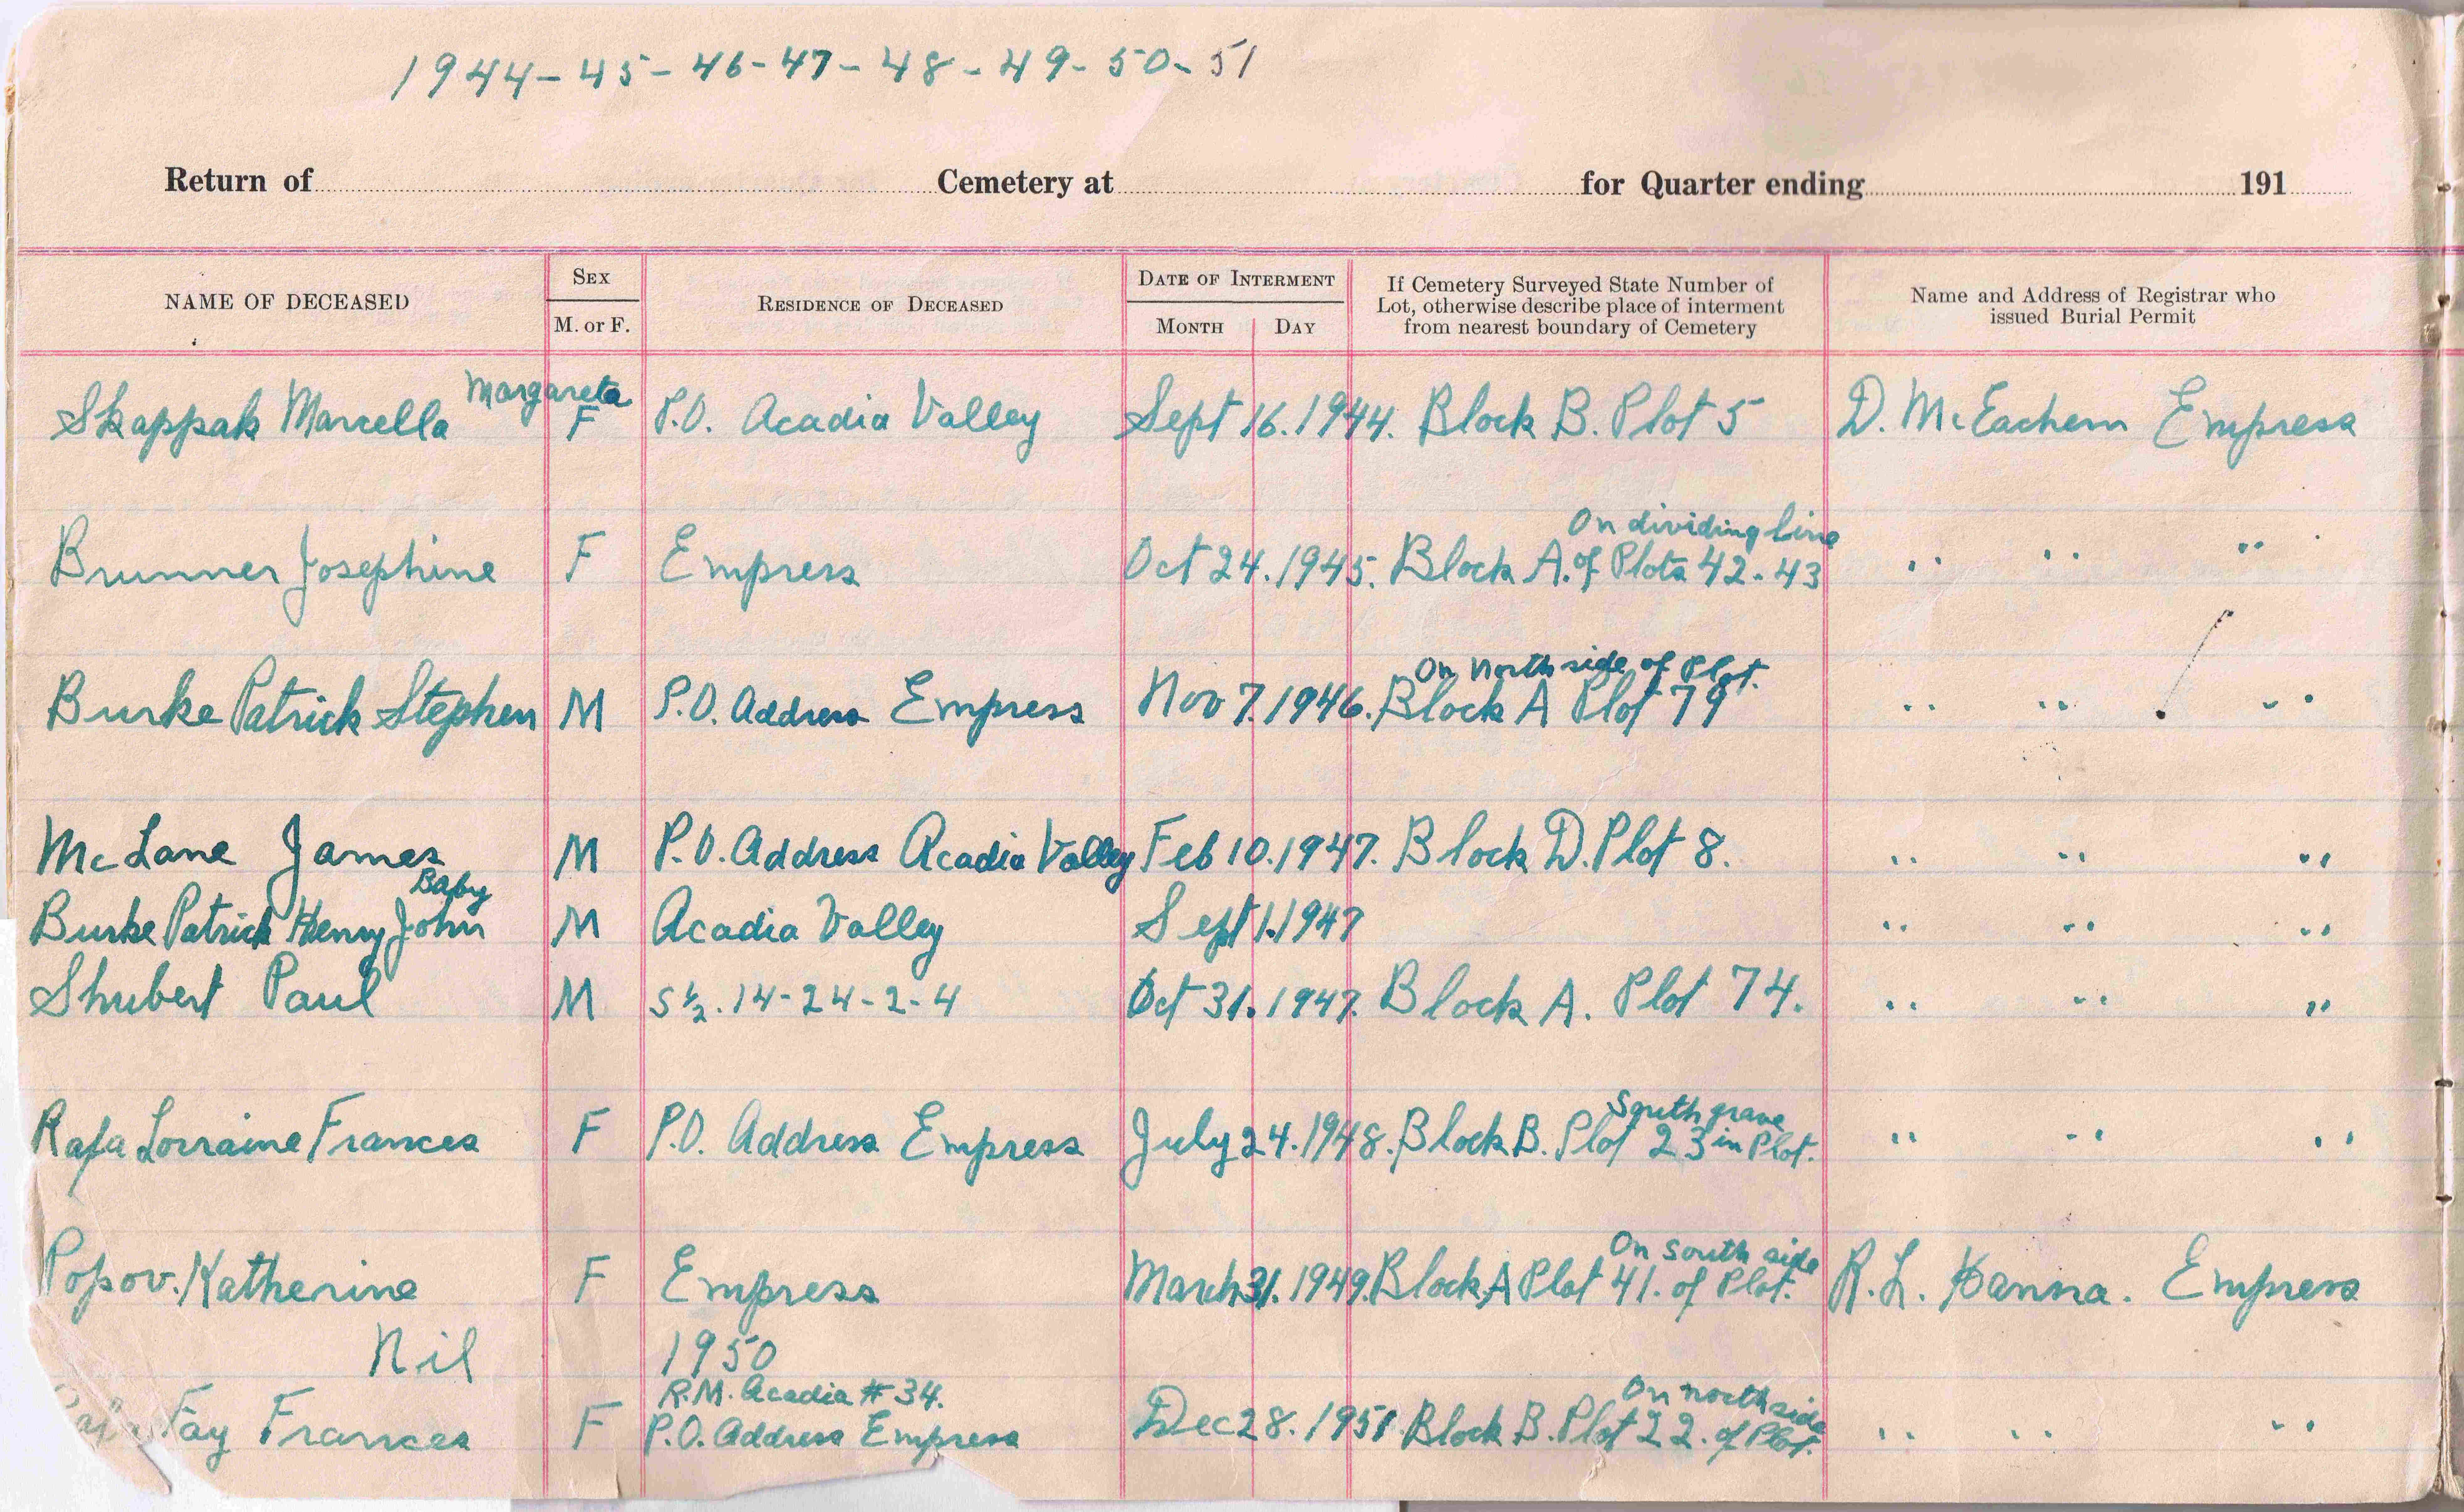 1944-45-46-47-48-49-50-51
Return of Cemetery at for Quarter ending 191
NAME OF DECEASED
SEX
M. or F.
RESIDENCE OF DECEASED
DATE OF INTERMENT
MONTH DAY
If Cemetery Surveyed State Number of
Lot, otherwise describe place of interment
from nearest boundary of Cemetery
Name and Address of Registrar who
issued Burial Permit
Margareta
Skappak Marcella F P.O. Acadia Valley Sept 16.1944. Block B. Plot 5 D. McEachern Empress
On dividing line
Brunner Josephine F Empress Oct 24.1945. Block A. of Plots 42-43 " " "
On North side of Plot.
Burke Patrick Stephen M P.O. Address Empress Nov 7.1946. Block A Plot 79 " " "
McLane James M P.O. Address Acadia Valley Feb 10.1947. Block D. Plot 8. " " "
Baby
Burke Patrick Henry John M Acadia Valley Sept 1.1947 " " "
Shubert Paul M S ½. 14-24-2-4 Oct 31.1947. Block A. Plot 74. " " "
South grave
Rafa Lorraine Frances F P.O. Address Empress July 24.1948. Block B. Plot 23 in Plot. " " "
On south side
Popov. Katherine F Empress March 31.1949. Block A Plot 41. of Plot. R.L. Hanna. Empress
Nil 1950
R.M. Acadia # 34. On north side
Fay Frances F P.O. Address Empress Dec 28.1951 Block B. Plot 22. of Plot. " " "